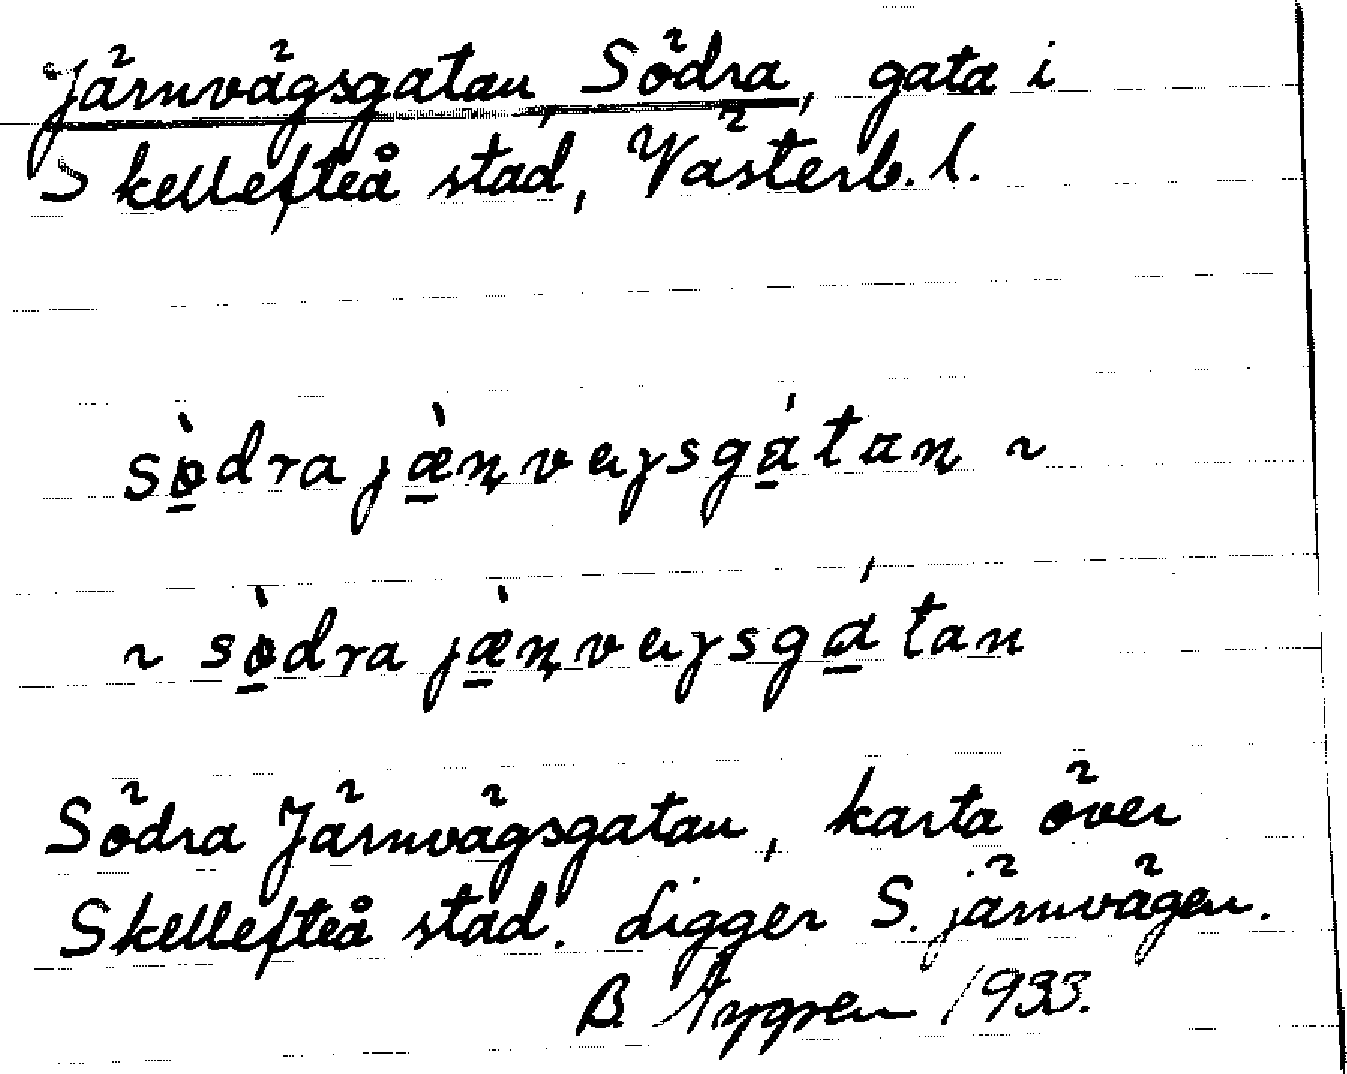 Järnvägsgatan, Södra, gata i
Skellefteå stad, Västerb. l.
sò̠dra jæ̠̀ɳvεgsgá̠tan ~
~ sò̠dra jæ̠̀ɳvεgsgá̠tan
Södra Järnvägsgatan, karta över
Skellefteå stad. Ligger S. järnvägen.
B. Nygren 1933.